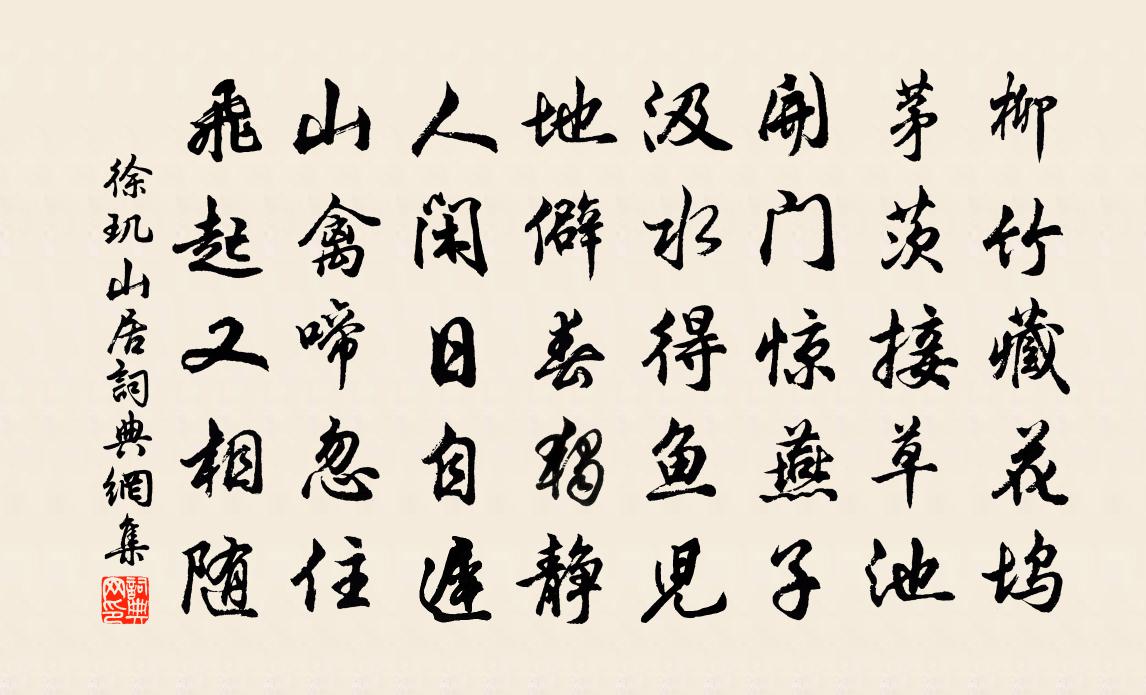 柳竹藏花坞
茅茨接草池
開门惊燕子
汲水得鱼児
地僻春獨静
人闲日自遲
山禽啼忽住
飛起又相随
徐玑山居詞典網集
詞典网印